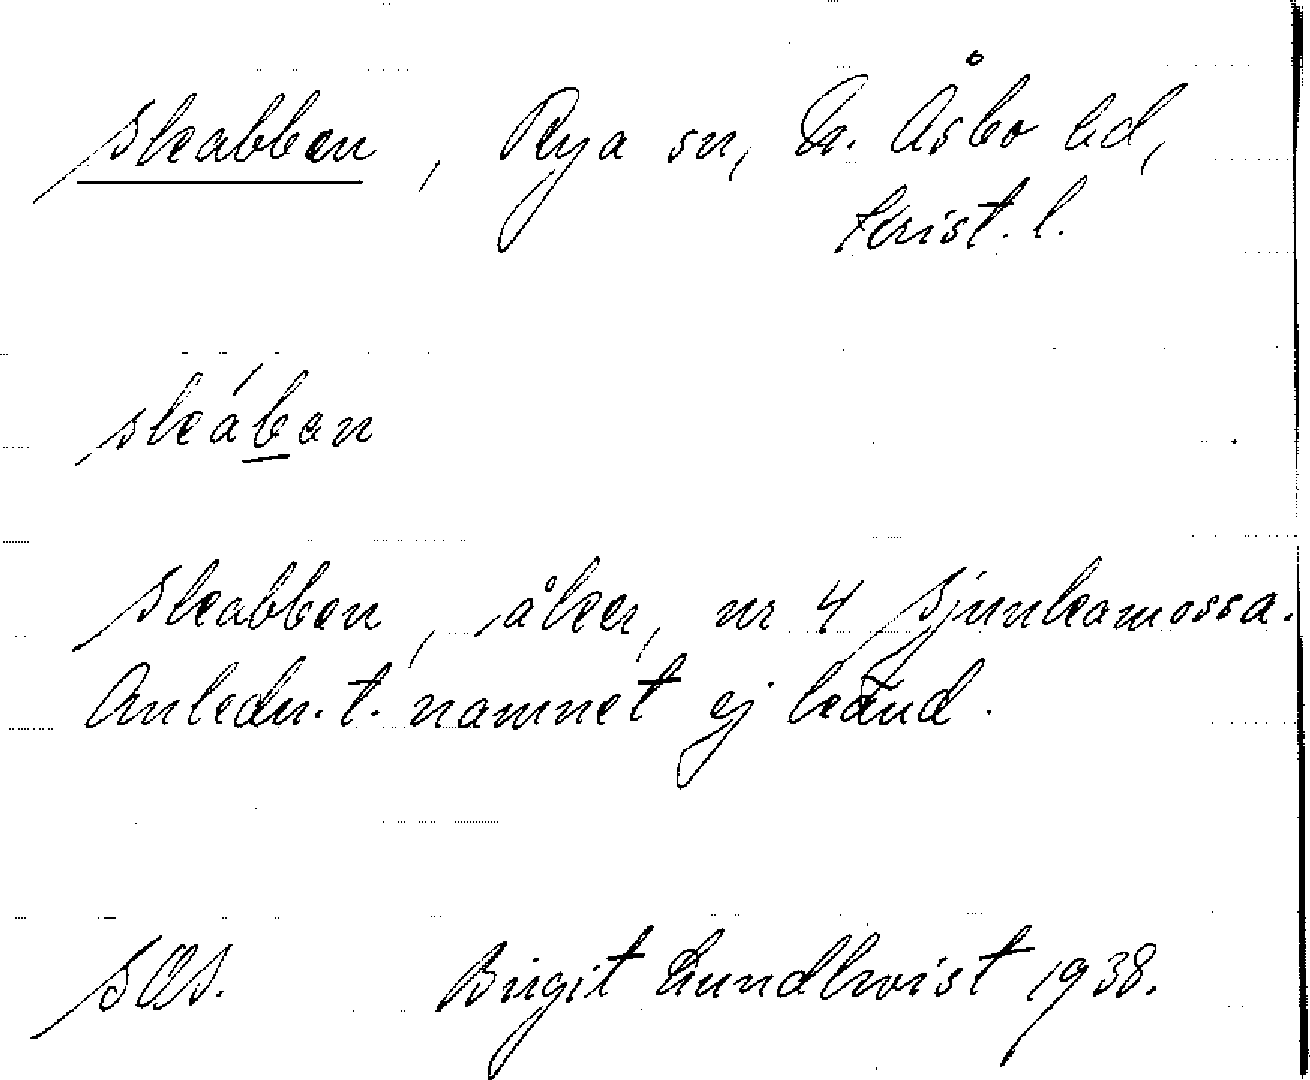 Skabben, Rya sn, N. Åsbo hd,
Krist. l.
skáb̲an
Skabben, åker, nr 4 Sjunkamossa.
Anledn. t. namnet ej känd.
SOS. Birgit Lundkvist 1938.